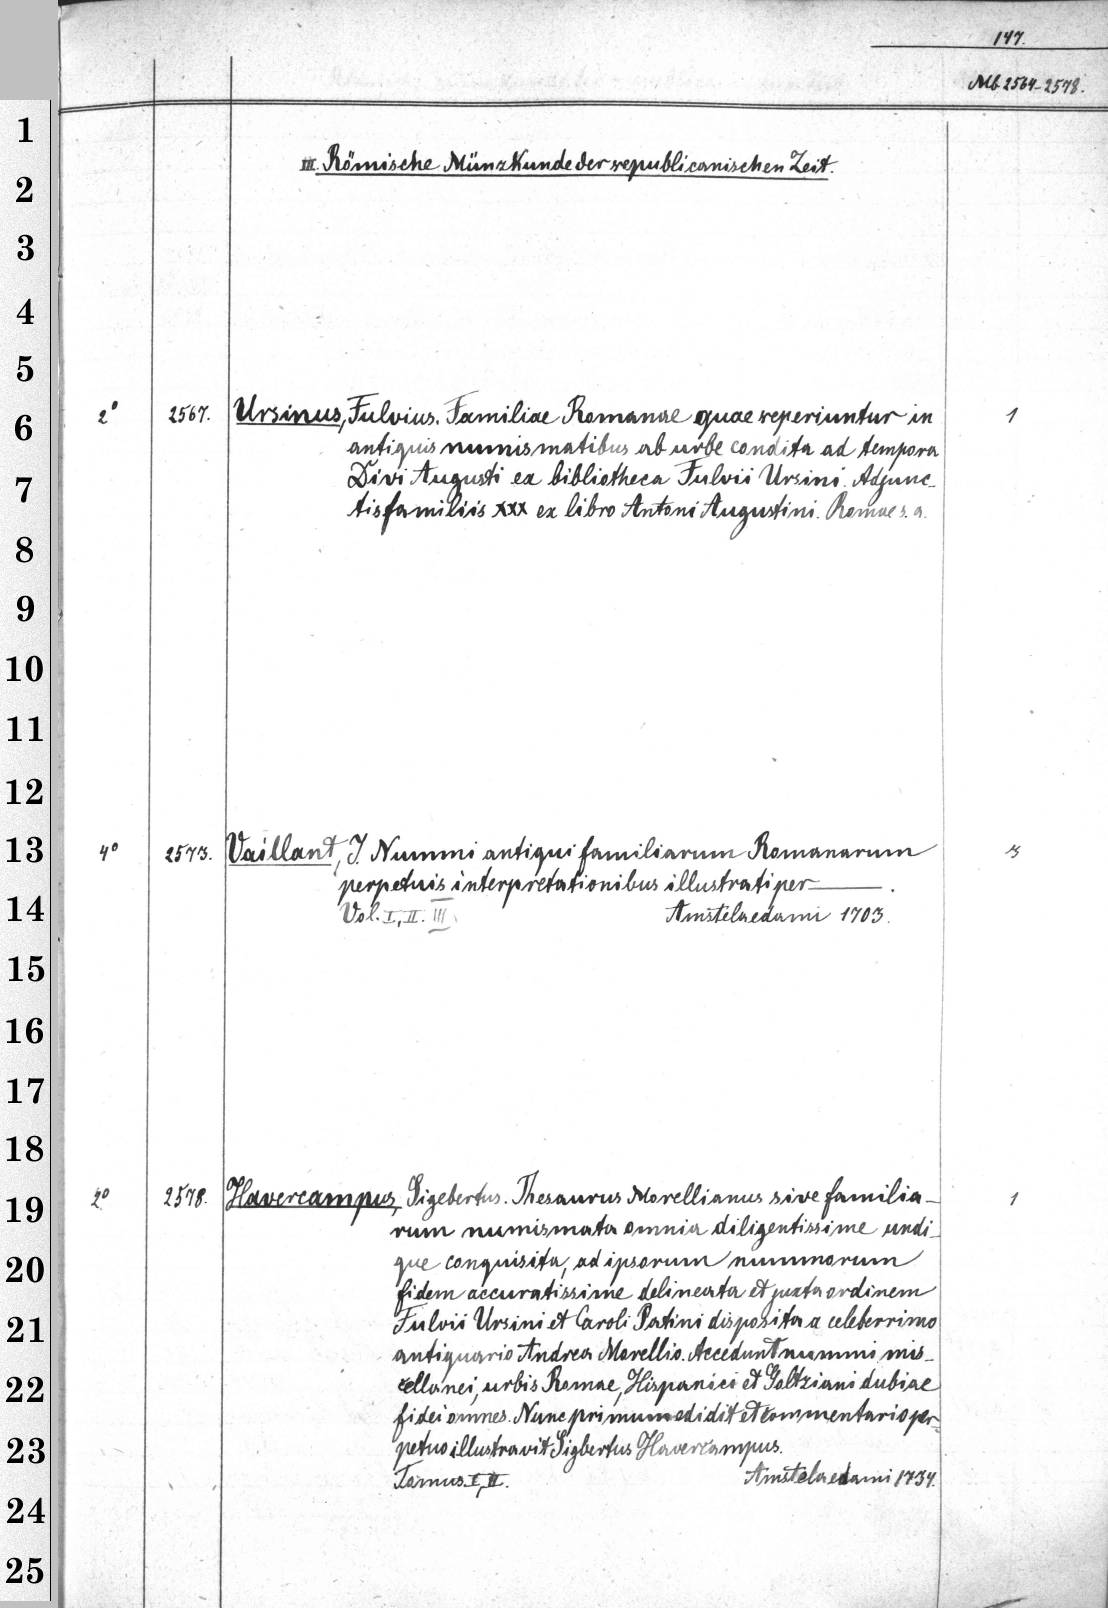 147.
Mb 2564-2578.
III. Römische Münzkunde der republicanischen Zeit.
2° 2567. Ursinus, Fulvius. Familiae Romanae quae reperiuntur in 1
antiquis numismatibus ab urbe condita ad tempora
Divi Augusti ex bibliotheca Fulvii Ursini. Adjunc-
tis familiis XXX ex libro Antoni Augustini. Romae s. a.
4° 2573. Vaillant, J. Nummi antiqui familiarum Romanarum 3
perpetuis interpretationibus illustrati per ———.
Vol. I, II. III Amstelaedami 1703.
2° 2578. Havercampus, Sigebertus. Thesaurus Morellianus sive familia- 1
rum numismata omnia diligentissime undi-
que conquisita, ad ipsorum nummorum
fidem accuratissime delineata et juxta ordinem
Fulvii Ursini et Caroli Patini disposita a celeberrimo
antiquario Andrea Morellio. Accedunt nummi mis-
cellanei, urbis Romae, Hispanici et Goltziani dubiae
fidei omnes. Nunc primum edidit et commentario per-
petuo illustravit Sigbertus Havercampus.
Tomus I, II. Amstelaedami 1734.
1
2
3
4
5
6
7
8
9
10
11
12
13
14
15
16
17
18
19
20
21
22
23
24
25